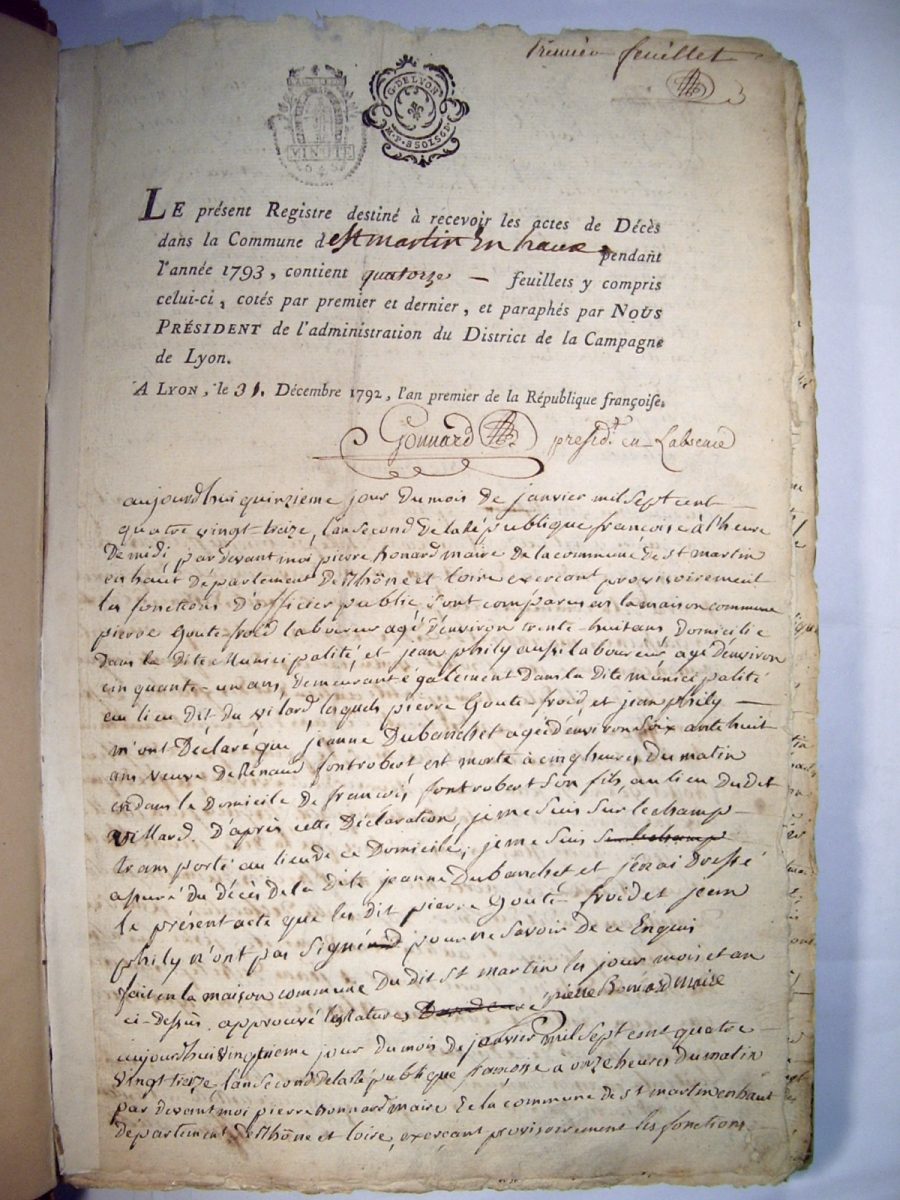 Premier feuillet
G. DE LYON
M.P. 8 SOLS 6 P
VINGT
LE présent Registre destiné à recevoir les actes de Décès
dans la Commune de st martin En haux pendant
l'année 1793, contient quatorze — feuillets y compris
celui-ci, cotés par premier et dernier, et paraphés par NOUS
PRÉSIDENT de l'administration du District de la Campagne
de Lyon.
A LYON, le 31. Décembre 1792, l'an premier de la République françoise.
Gonnard presid.t en Labsence
aujourd'hui quinzieme jour du mois de janvier mil sept cent
quatre vingt-traize, l'an second de la République françoise à l'heure
de midi, par devant moi pierre bonard maire de la commune de st martin
en haut département de Rhône et loire exercant provisoirement
les fonctions d'officier public, sont comparus en la maison commune
pierre Goute-froid laboureur agé d'environ trente-huit ans, domicilié
dans la dite Municipalité, et jean phily aussi laboureur, agé d'environ
cinquante-un ans, demeurant également dans la dite municipalité
au lieu dit du vilard lesquels pierre Goute-froid et jean phily —
m'ont déclaré que jeanne Dubanchet agée d'environ soixante huit
ans veuve de Renaud fontrobert est morte à cinq heures du matin
dans le domicile de francois fontrobert son fils, au lieu du dit
villard. D'après cette déclaration, je me suis sur le champ
transporté au lieu de ce domicile, je me suis sur le champ
assuré du décès de la dite jeanne Dubanchet et j'en ai dressé
le présent acte que les dit pierre Goute-froid et jean
phily n'ont pas signé pour ne savoir de ce Enquis
fait en la maison commune du dit st martin les jour mois et an
ci-dessus. approuvé les ratures pierre Bonard maire
aujourd'hui vingtieme jour du mois de janvier mil sept cent quatre
vingt traize l'an second de la République françoise à onze heures du matin
par devant moi pierre bonnard maire de la commune de st martin en haut
département de Rhône et loire, exerçant provisoirement les fonctions